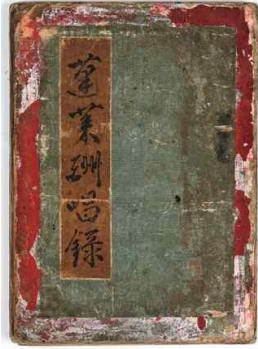 蓬莱酬唱錄